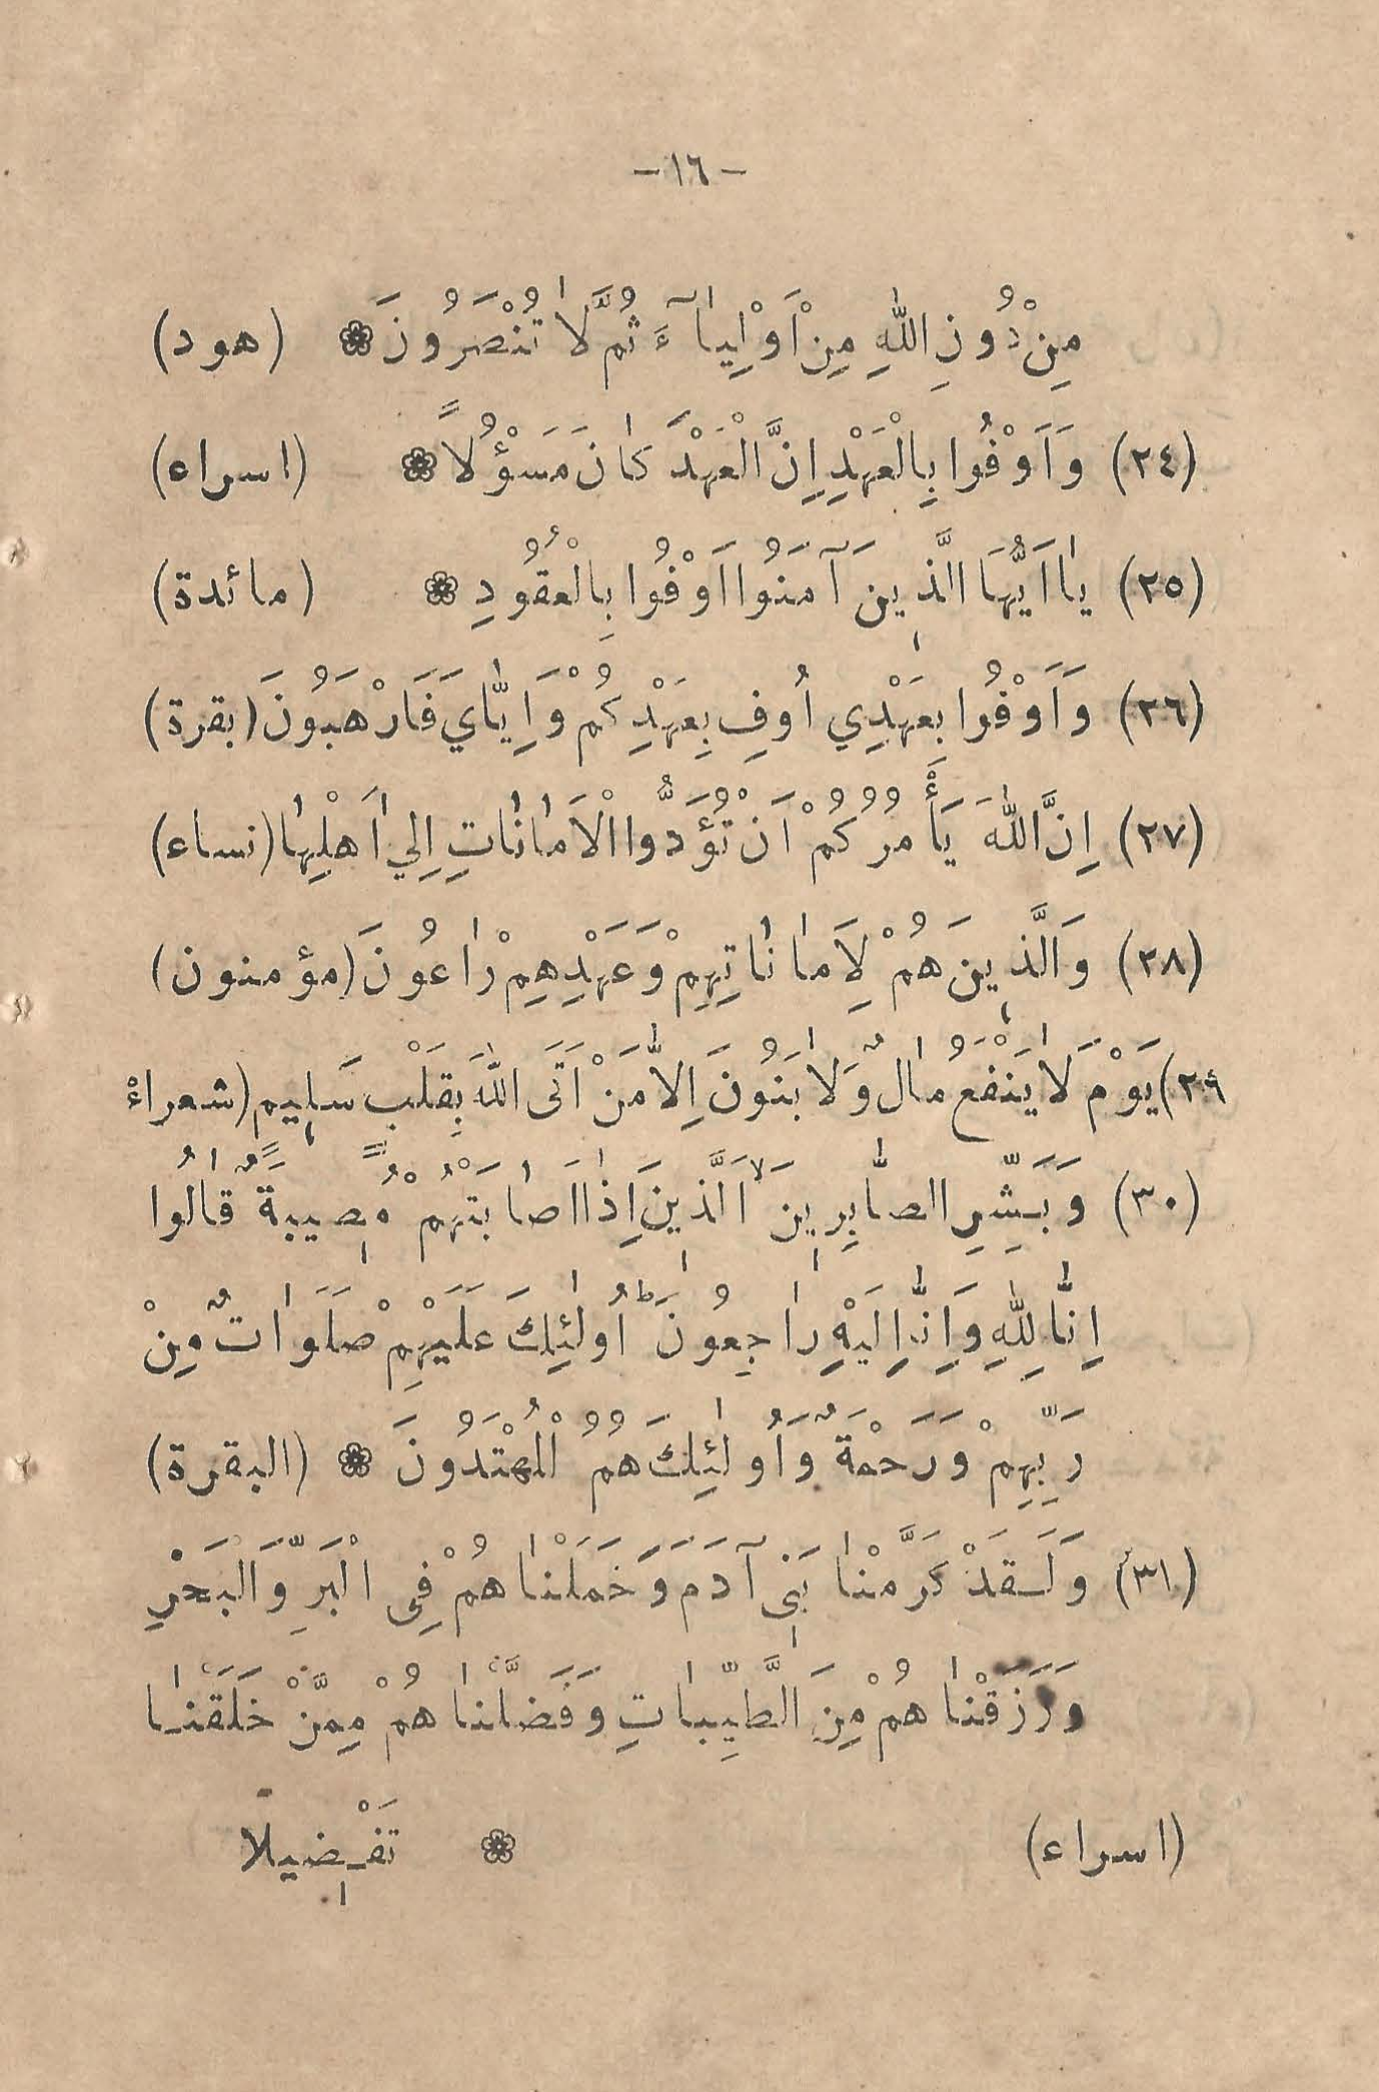 – ١٦ –
مِنْ دُونِ اللّٰهِ مِنْ اَوْلِيٰآءَ ثُمَّ لٰا تُنْصَرُونَ ❁ (هود)
(٢٤) وَاَوْفُوا بِالْعَهْدِ اِنَّ الْعَهْدَ كٰانَ مَسْؤُلاً ❁ (اسراء)
(٢٥) يٰا اَيُّهَا الَّذٖينَ آمَنُوا اَوْفُوا بِالْعُقُودِ ❁ (مائدة)
(٢٦) وَاَوْفُوا بِعَهْدِي اُوفِ بِعَهْدِكُمْ وَاِيّٰايَ فَارْهَبُونَ (بقرة)
(٢٧) اِنَّ اللّٰهَ يَأْمُرُكُمْ اَنْ تُؤَدُّوا الْاَمٰانٰاتِ اِلي اَهْلِهٰا (نساء)
(٢٨) وَالَّذٖينَ هُمْ لِاَمٰانٰاتِهِمْ وَعَهْدِهِمْ رٰاعُونَ (مؤمنون)
٢٩) يَوْمَ لٰا يَنْفَعُ مٰالٌ وَلٰا بَنُونَ اِلّٰا مَنْ اَتَى اللّٰهَ بِقَلْب سَلٖيم (شعراءْ
(٣٠) وَبَشِّرِ الصّٰابِرِينَ اَلَّذٖينَ اِذٰا اَصٰابَتْهُمْ مُصٖيبَةٌ قٰالُوا
اِنّٰا لِلّٰهِ وَاِنّٰا اِلَيْهِ رٰاجِعُونَ اُولٰئِكَ عَلَيْهِمْ صَلَوٰاتٌ مِنْ
رَبِّهِمْ وَرَحْمَةٌ وَاُولٰئِكَ هُمُ الْمُهْتَدُونَ ❁ (البقرة)
(٣١) وَلَـقَدْ كَرَّمْنٰا بَنٖى آدَمَ وَحَمَلْنٰاهُمْ فِى الْبَرِّ وَالْبَحْرِ
وَرَزَقْنٰاهُمْ مِنَ الطَّيِّبٰاتِ وَفَضَّلْنٰاهُمْ مِمَّنْ خَلَقْنٰا
تَفْـضٖيلا ❁ (اسراء)